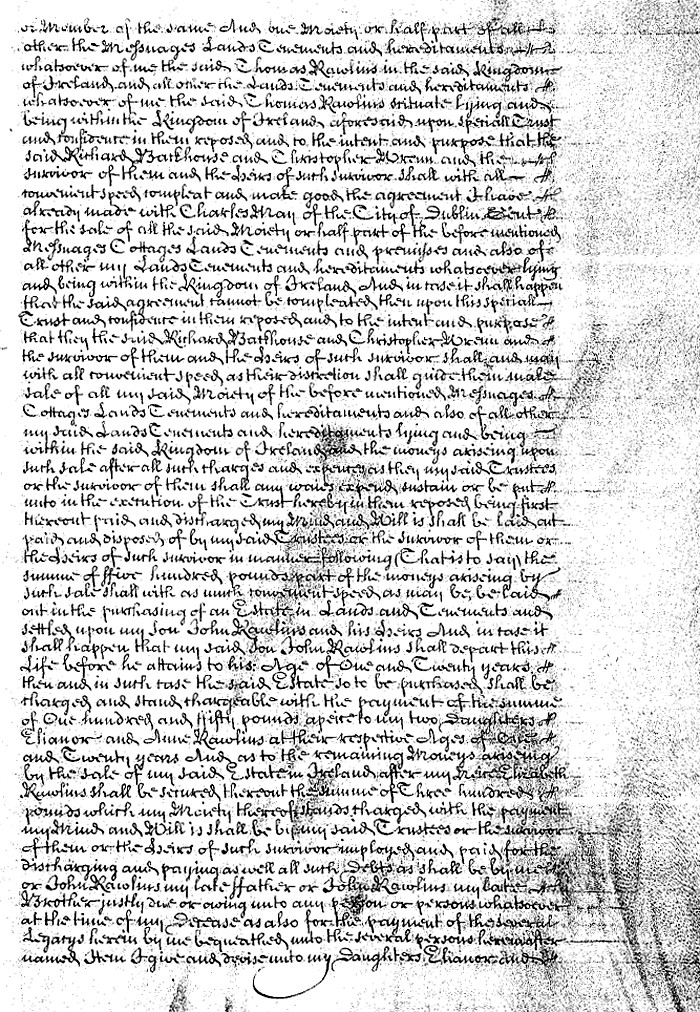 or Member of the same And one Moiety or half part of all
other the Messuages Lands Tenements and hereditaments
whatsoever of me the said Thomas Rawlins in the said Kingdome
of Ireland and all other the Lands Tenements and hereditaments
whatsoever of me the said Thomas Rawlins scituate lying and
being within the Kingdom of Ireland aforesaid upon speciall Trust
and confidence in them reposed and to the intent and purpose that the
said Richard Backhouse and Christopher Wrenn and the
survivor of them and the Heirs of such survivor shall with all
convenient speed compleat and make good the agreement I have
already made with Charles May of the City of Dublin Gent
for the sale of all the said Moiety or half part of the before mentioned
Messuages Cottages Lands Tenements and premisses and also of
all other my Lands Tenements and hereditaments whatsoever lying
and being within the Kingdom of Ireland And in case it shall happen
that the said agreement cannot be compleated then upon this speciall
Trust and confidence in them reposed and to the intent and purpose
that they the said Richard Backhouse and Christopher Wrenn and
the survivor of them and the Heirs of such survivor shall and may
with all convenient speed as their discretion shall guide them make
sale of all my said Moiety of the before mentioned Messuages
Cottages Lands Tenements and hereditaments and also of all other
my said Lands Tenements and hereditaments lying and being
within the said Kingdom of Ireland and the moneys arising upon
such sale after all such charges and expences as they my said Trustees
or the survivor of them shall any waies expend sustain or be put
unto in the execution of the Trust hereby in them reposed being first
thereout paid and discharged my Mind and Will is shall be laid out
paid and disposed of by my said Trustees or the survivor of them or
the Heirs of such survivor in manner following (That is to say) the
summe of ffive hundred pounds part of the moneys arising by
such sale shall with as much convenient speed as may be, be laid
out in the purchasing of an Estate in Lands and Tenements and
settled upon my Son John Rawlins and his Heirs And in case it
shall happen that my said Son John Rawlins shall depart this
Life before he attains to his Age of One and Twenty years
then and in such case the said Estate so to be purchased shall be
charged and stand chargeable with the payment of the summe
of One hundred and ffifty pounds apeice to my two Daughters
Elianor and Anne Rawlins at their respective Ages of One
and Twenty years And as to the remaining Moneys arising
by the sale of my said Estate in Ireland after my Neice Elizabeth
Rawlins shall be secured thereout the summe of Three hundred
pounds which my Moiety thereof stands charged with the payment
my Mind and Will is shall be by my said Trustees or the survivor
of them or the Heirs of such survivor imployed and paid for the
discharging and paying as well all such Debts as shall be by me
or John Rawlins my late ffather or John Rawlins my late
Brother justly due or owing unto any person or persons whatsoever
at the time of my Decease as also for the payment of the severall
Legacys herein by me bequeathed unto the several persons hereinafter
named Item I give and devise unto my Daughters Elianor and